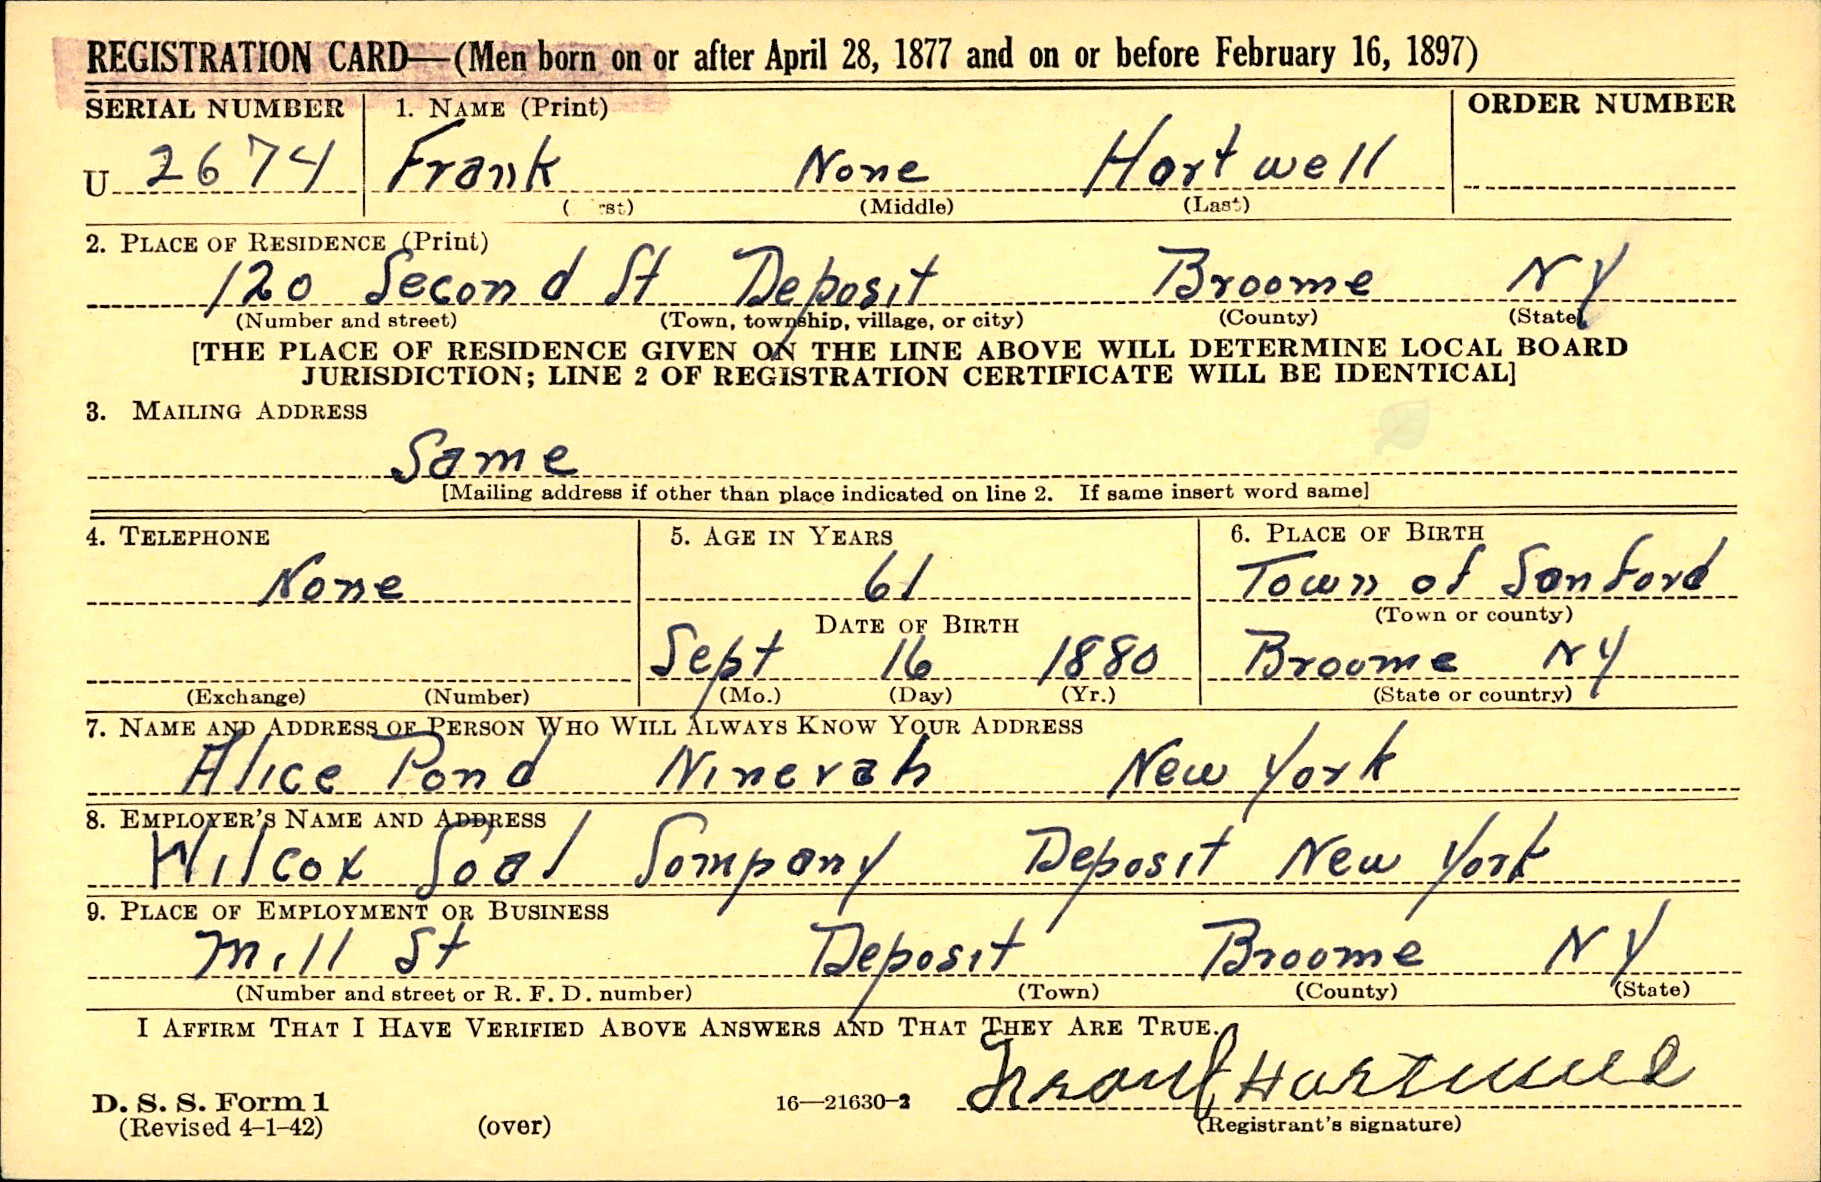 REGISTRATION CARD—(Men born on or after April 28, 1877 and on or before February 16, 1897)
SERIAL NUMBER 1. NAME (Print) ORDER NUMBER
U 2674 Frank None Hartwell
(First) (Middle) (Last)
2. PLACE OF RESIDENCE (Print)
120 Second St Deposit Broome NY
(Number and street) (Town, township, village, or city) (County) (State)
[THE PLACE OF RESIDENCE GIVEN ON THE LINE ABOVE WILL DETERMINE LOCAL BOARD
JURISDICTION; LINE 2 OF REGISTRATION CERTIFICATE WILL BE IDENTICAL]
3. MAILING ADDRESS
Same
[Mailing address if other than place indicated on line 2. If same insert word same]
4. TELEPHONE 5. AGE IN YEARS 6. PLACE OF BIRTH
None 61 Town of Sanford
DATE OF BIRTH (Town or county)
Sept 16 1880 Broome NY
(Exchange) (Number) (Mo.) (Day) (Yr.) (State or country)
7. NAME AND ADDRESS OF PERSON WHO WILL ALWAYS KNOW YOUR ADDRESS
Alice Pond Ninevah New York
8. EMPLOYER'S NAME AND ADDRESS
Wilcox Coal Company Deposit New York
9. PLACE OF EMPLOYMENT OR BUSINESS
Mill St Deposit Broome NY
(Number and street or R. F. D. number) (Town) (County) (State)
I AFFIRM THAT I HAVE VERIFIED ABOVE ANSWERS AND THAT THEY ARE TRUE.
Frank Hartwell
D. S. S. Form 1
(Revised 4-1-42) (over) 16—21630-2 (Registrant's signature)